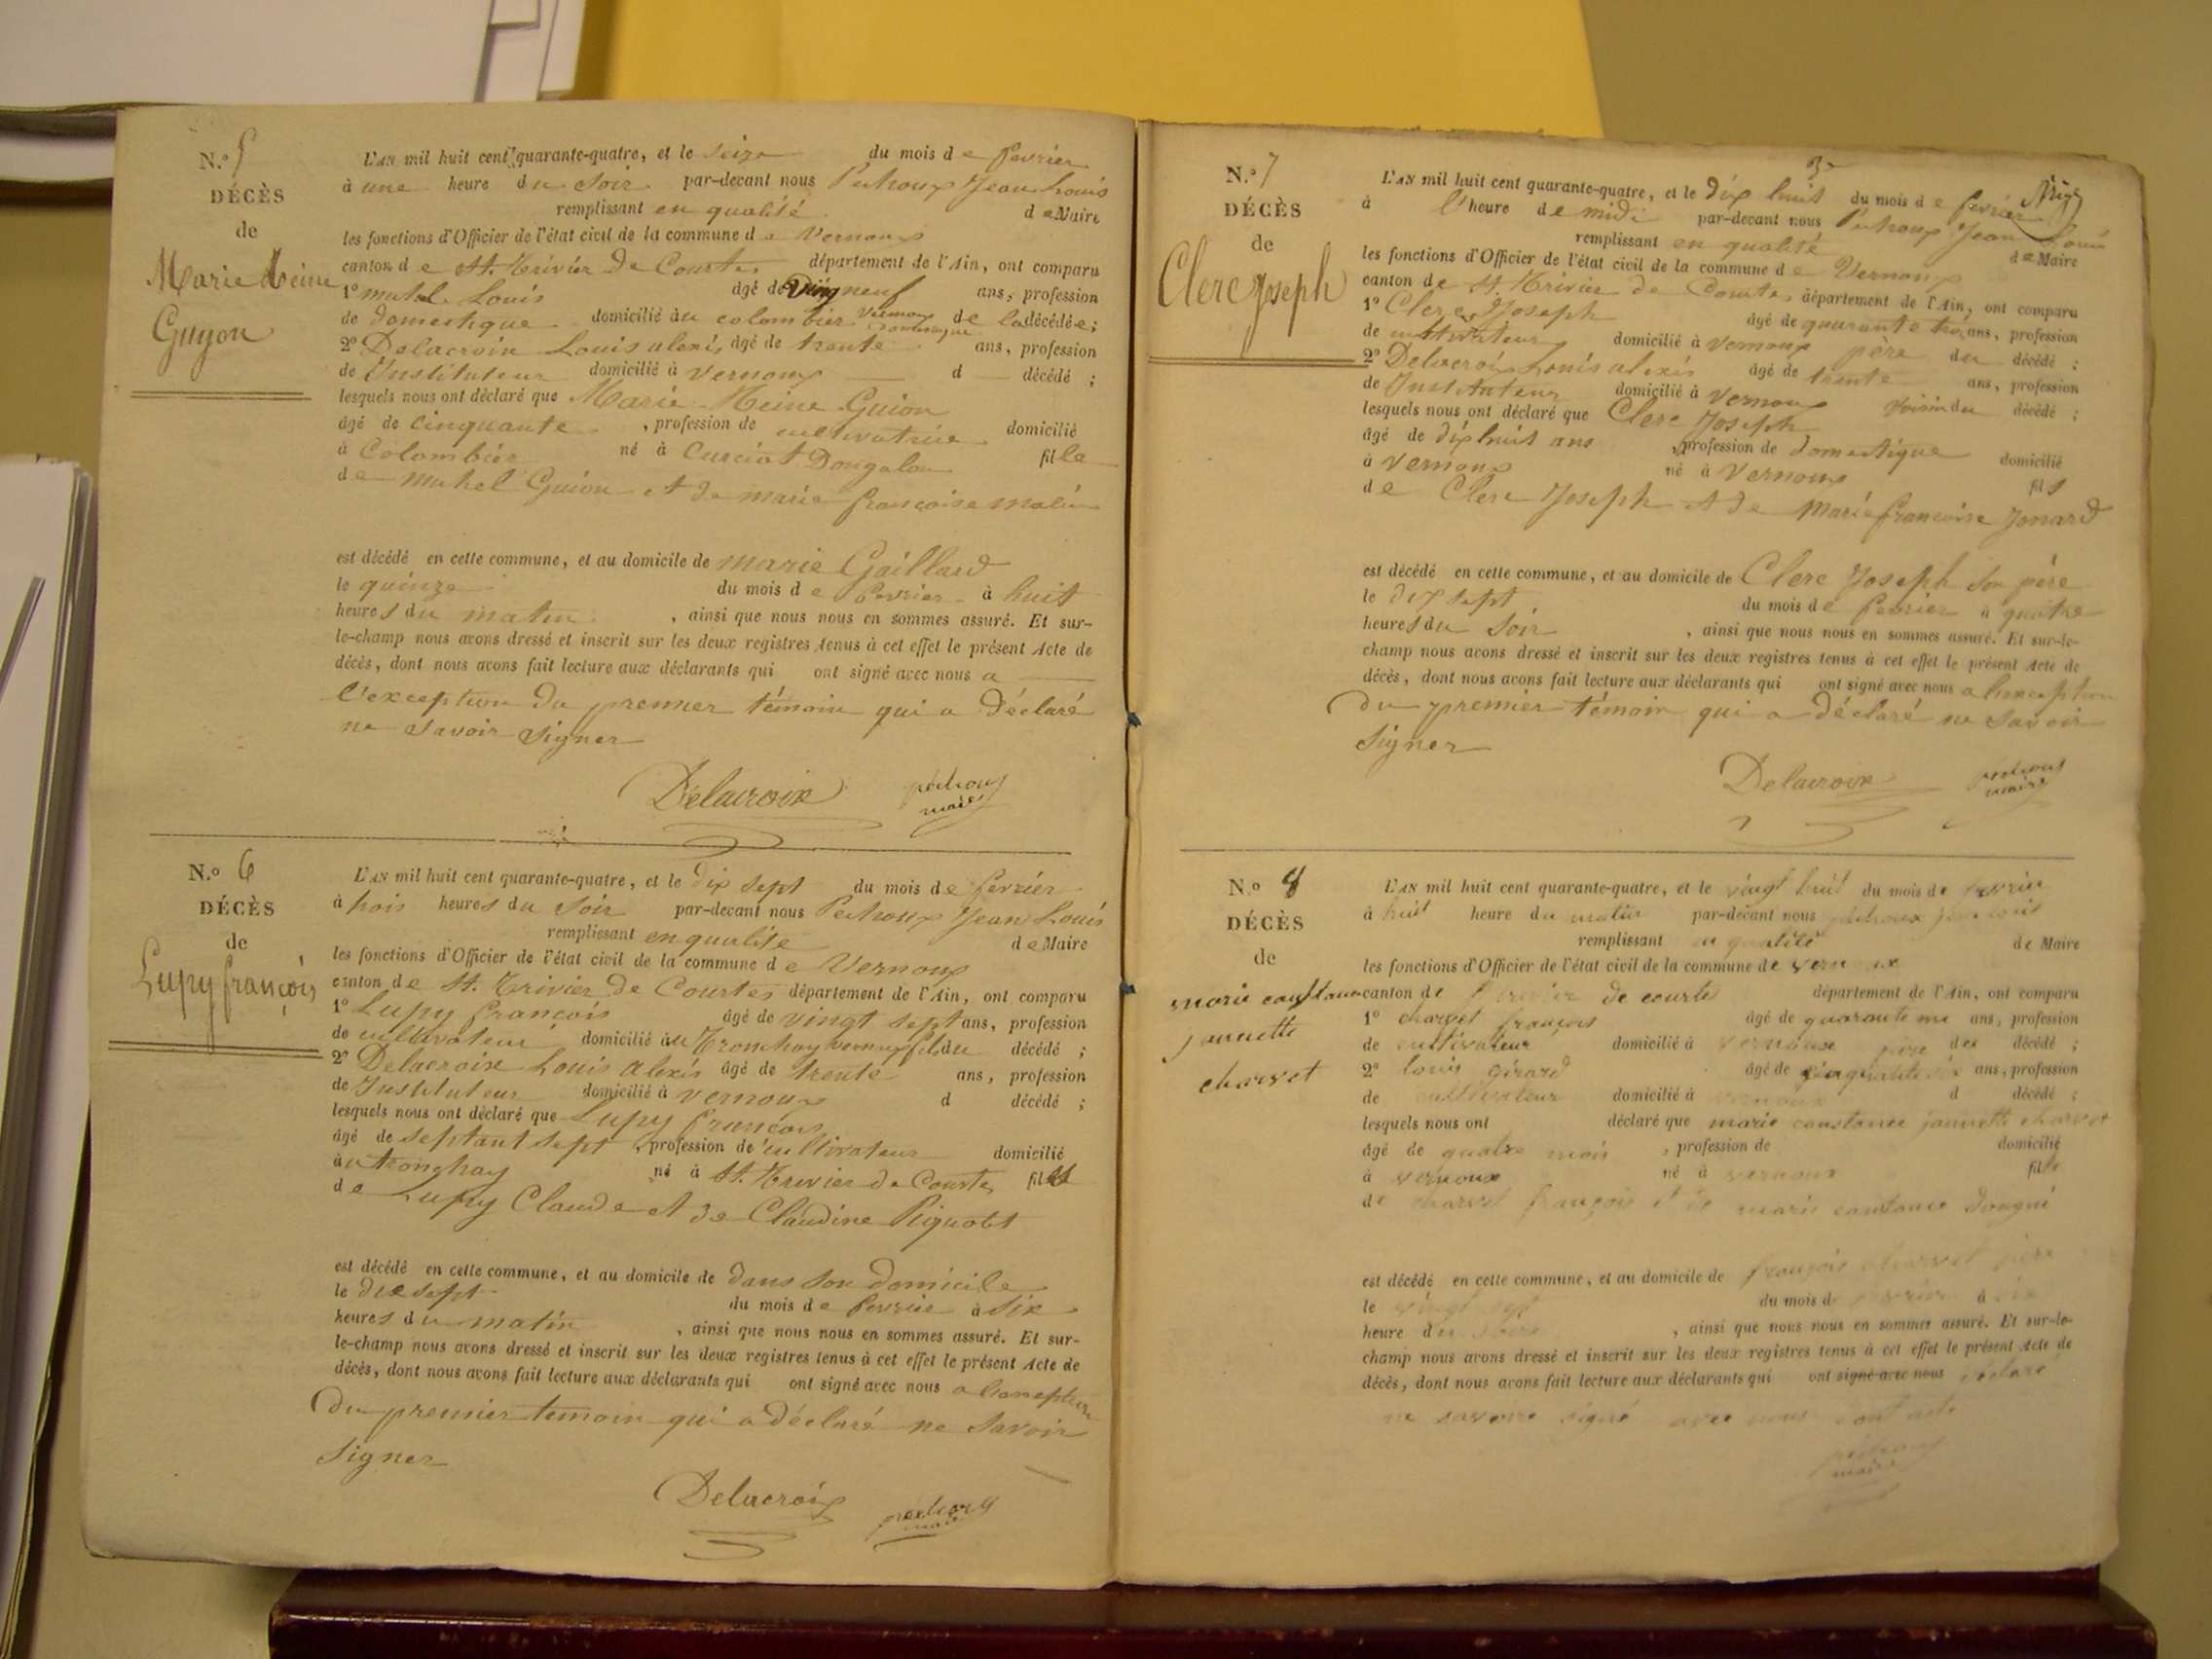 N.o 5
DÉCÈS
de
Marie Reine
Guyon
L'AN mil huit cent quarante-quatre, et le seize du mois de fevrier
à une heure du soir par-devant nous Pechoux Jean Louis
remplissant en qualité de Maire
les fonctions d'Officier de l'état civil de la commune de Vernoux
canton de St. Trivier de Courtes département de l'Ain, ont comparu
1o Louis âgé de neuf ans, profession
de domestique domicilié au colombier Vernoux de la décédée;
2o Delacroix Louis alexis âgé de trente ans, profession
de Instituteur domicilié à Vernoux d décédé;
lesquels nous ont déclaré que Marie Reine Guion
âgé de cinquante, profession de cultivatrice domicilié
à Colombier né à Curciat Dongalon fille
de Michel Guion et de marie françoise
est décédé en cette commune, et au domicile de marie Gaillard
le quinze du mois de fevrier à huit
heures du matin, ainsi que nous nous en sommes assuré. Et sur-
le-champ nous avons dressé et inscrit sur les deux registres tenus à cet effet le présent Acte de
décès, dont nous avons fait lecture aux déclarants qui ont signé avec nous a
l'exception du premier témoin qui a déclaré
ne savoir signer
Delacroix pechoux
maire
N.o 6
DÉCÈS
de
Lupy françois
L'AN mil huit cent quarante-quatre, et le dix sept du mois de fevrier
à trois heures du soir par-devant nous Pechoux Jean Louis
remplissant en qualité de Maire
les fonctions d'Officier de l'état civil de la commune de Vernoux
canton de St. Trivier de Courtes département de l'Ain, ont comparu
1o Lupy françois âgé de vingt sept ans, profession
de cultivateur domicilié au Tronchay vernoux fils du décédé;
2o Delacroix Louis alexis âgé de trente ans, profession
de Instituteur domicilié à vernoux d décédé;
lesquels nous ont déclaré que Lupy françois
âgé de septant sept, profession de cultivateur domicilié
au tronchay né à St. Trivier de Courtes fils
de Lupy Claude et de Claudine
est décédé en cette commune, et au domicile de dans son domicile
le dix sept du mois de fevrier à six
heures du matin, ainsi que nous nous en sommes assuré. Et sur-
le-champ nous avons dressé et inscrit sur les deux registres tenus à cet effet le présent Acte de
décès, dont nous avons fait lecture aux déclarants qui ont signé avec nous a l'exception
du premier temoin qui a déclaré ne savoir
signer
Delacroix pechoux
maire
3
N.o 7
DÉCÈS
de
Clerc Joseph
L'AN mil huit cent quarante-quatre, et le dix huit du mois de fevrier
à l'heure de midi par-devant nous Pechoux Jean Louis
remplissant en qualité de Maire
les fonctions d'Officier de l'état civil de la commune de Vernoux
canton de St. Trivier de Courtes département de l'Ain, ont comparu
1o Clerc Joseph âgé de quarante trois ans, profession
de cultivateur domicilié à Vernoux père du décédé;
2o Delacroix Louis alexis âgé de trente ans, profession
de Instituteur domicilié à Vernoux voisin du décédé;
lesquels nous ont déclaré que Clerc Joseph
âgé de dix huit ans, profession de domestique domicilié
à Vernoux né à Vernoux fils
de Clerc Joseph et de Marie françoise Jonard
est décédé en cette commune, et au domicile de Clerc Joseph son père
le dix sept du mois de fevrier à quatre
heures du soir, ainsi que nous nous en sommes assuré. Et sur-le-
champ nous avons dressé et inscrit sur les deux registres tenus à cet effet le présent Acte de
décès, dont nous avons fait lecture aux déclarants qui ont signé avec nous a l'exception
du premier témoin qui a déclaré ne savoir
signer
Delacroix pechoux
maire
N.o 8
DÉCÈS
de
marie constance
jannette
charvet
L'AN mil huit cent quarante-quatre, et le vingt huit du mois de fevrier
à huit heure du matin par-devant nous péchoux jean louis
remplissant en qualité de Maire
les fonctions d'Officier de l'état civil de la commune de vernoux
canton de trivier de courte département de l'Ain, ont comparu
1o charvet françois âgé de quarante ans, profession
de cultivateur domicilié à vernoux père de décédé;
2o louis girard âgé de ans, profession
de cultivateur domicilié à vernoux d décédé;
lesquels nous ont déclaré que marie constance jannette charvet
âgé de quatre mois, profession de domicilié
à vernoux né à vernoux fille
de charvet françois et de marie constance
est décédé en cette commune, et au domicile de françois charvet père
le vingt sept du mois de fevrier à
heure du, ainsi que nous nous en sommes assuré. Et sur-le-
champ nous avons dressé et inscrit sur les deux registres tenus à cet effet le présent Acte de
décès, dont nous avons fait lecture aux déclarants qui ont signé avec nous déclaré
ne savoir signé avec nous dont acte
péchoux
maire